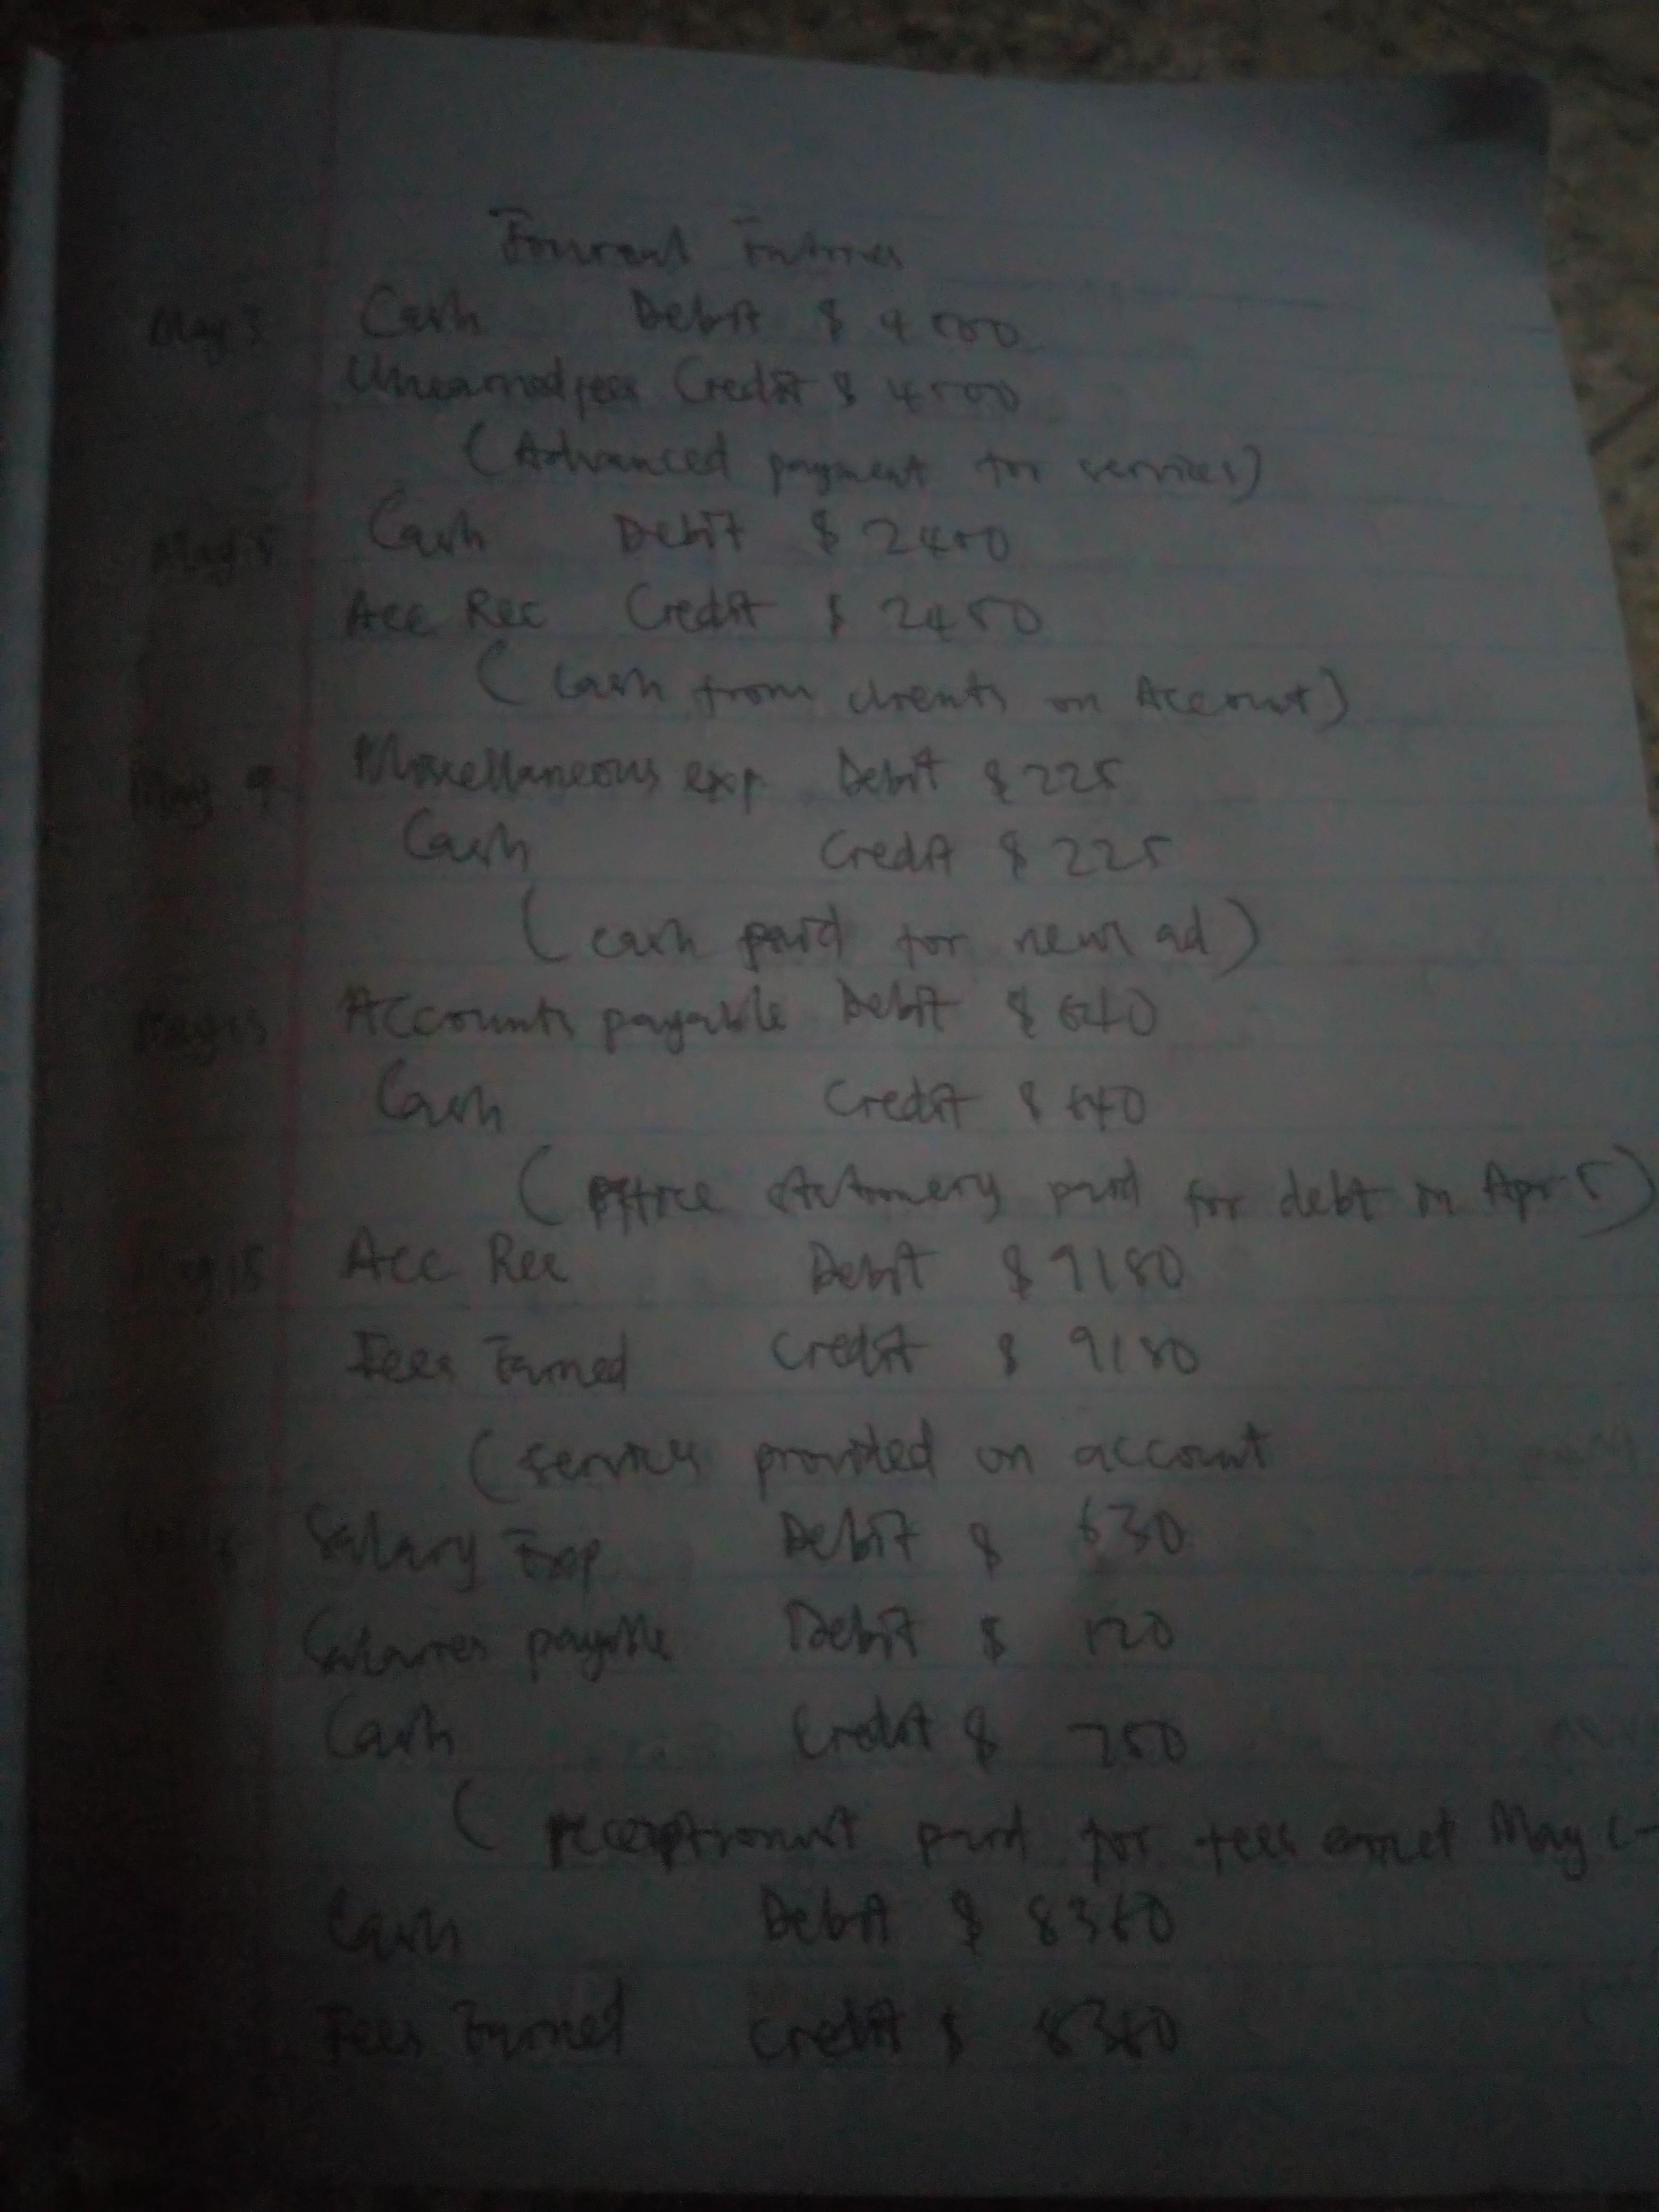 Journal Entries
May 3 Cash Debit $ 4500
Unearned fees Credit $ 4500
(Advanced payment for services)
May Cash Debit $ 2450
Acc Rec Credit $ 2450
(Cash from clients on Account)
May 9 Miscellaneous exp. Debit $ 225
Cash Credit $ 225
(cash paid for news ad)
May 13 Accounts payable Debit $ 640
Cash Credit $ 640
(office stationery paid for debt in Apr 5)
May 15 Acc Rec Debit $ 9180
Fees Earned Credit $ 9180
(services provided on account
Salary Exp Debit $ 630
Salaries payable Debit $ 120
Cash Credit $ 750
(receptionist paid for fees May
Cash Debit $ 8360
Fees Earned Credit $ 8360